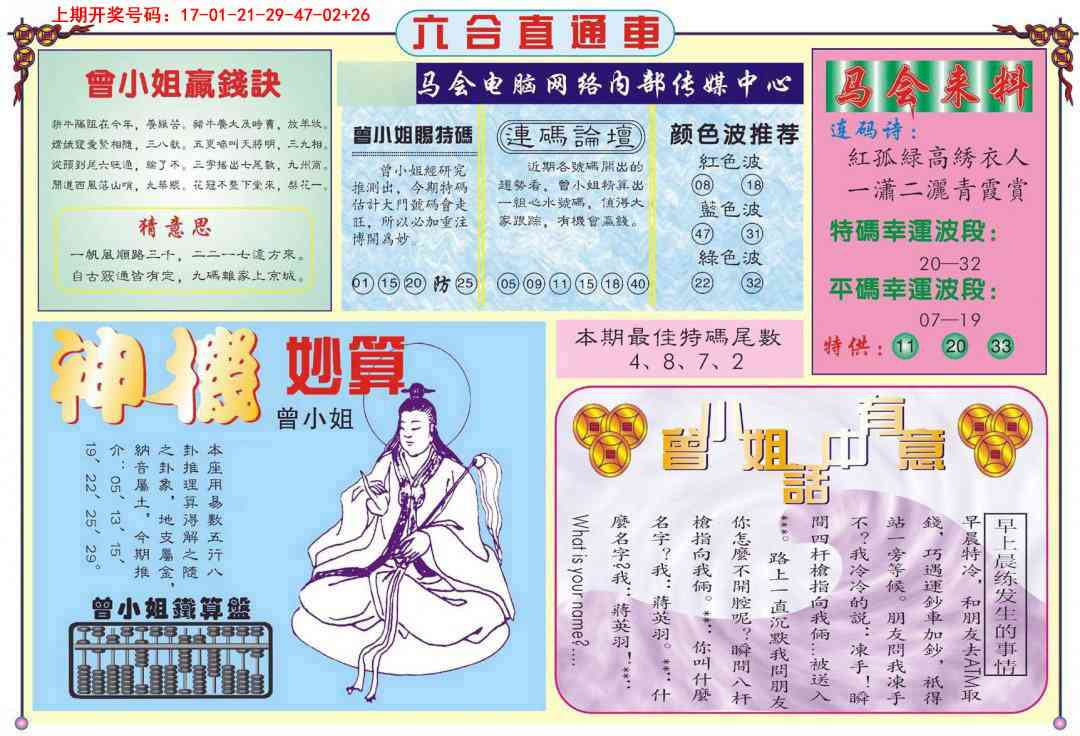 上期开奖号码：17-01-21-29-47-02+26
六合直通車
曾小姐贏錢訣
新牛隔阻在今年，養緑苦。豬牛養大及時賣，放羊收。
嫦娥寵愛緊相隨，三八獻。五更啼叫天將明，三九相。
從頭到尾六旺漁，綜了不。三字搖出七尾數，九州商。
聞道西風落山哨，九英眼。花冠不整下堂來，梨花一。
猜意思
一帆風順路三千，二二一七遠方來。
自古窮通皆有定，九碼離家上京城。
马会电脑网络内部传媒中心
曾小姐賜特碼
曾小姐經研究
推測出，今期特碼
估計大門號碼會走
旺，所以必加重注
博開為妙
01 15 20 防 25
連碼論壇
近期各號碼開出的
趨勢看，曾小姐精算出
一組心水號碼，值得大
家跟踪，有機會贏錢。
05 09 11 15 18 40
颜色波推荐
紅色波
08 18
藍色波
47 31
綠色波
22 32
马会来料
连码诗：
紅孤緑高绣衣人
一瀟二灑青霞賞
特碼幸運波段：
20—32
平碼幸運波段：
07—19
特供：11 20 33
神機妙算
曾小姐
本座用易數五行八
卦推理算得解之隨
之卦象，地支屬金，
納音屬土，今期推
介：05、13、15、
19、22、25、29。
曾小姐鐵算盤
本期最佳特碼尾數
4、8、7、2
曾小姐話中有意
早上晨练发生的事情
早晨特冷，和朋友去ATM取
錢，巧遇運鈔車加鈔，祇得
站一旁等候。朋友問我凍手
不？我冷冷的説：凍手！瞬
間四杆槍指向我倆…被送入
***。路上一直沉默我問朋友
你怎麽不開腔呢？瞬間八杆
槍指向我倆。**：你叫什麼
名字？我：蔣英羽。**：什
麼名字？我：蔣英羽！**：
What is your name?....